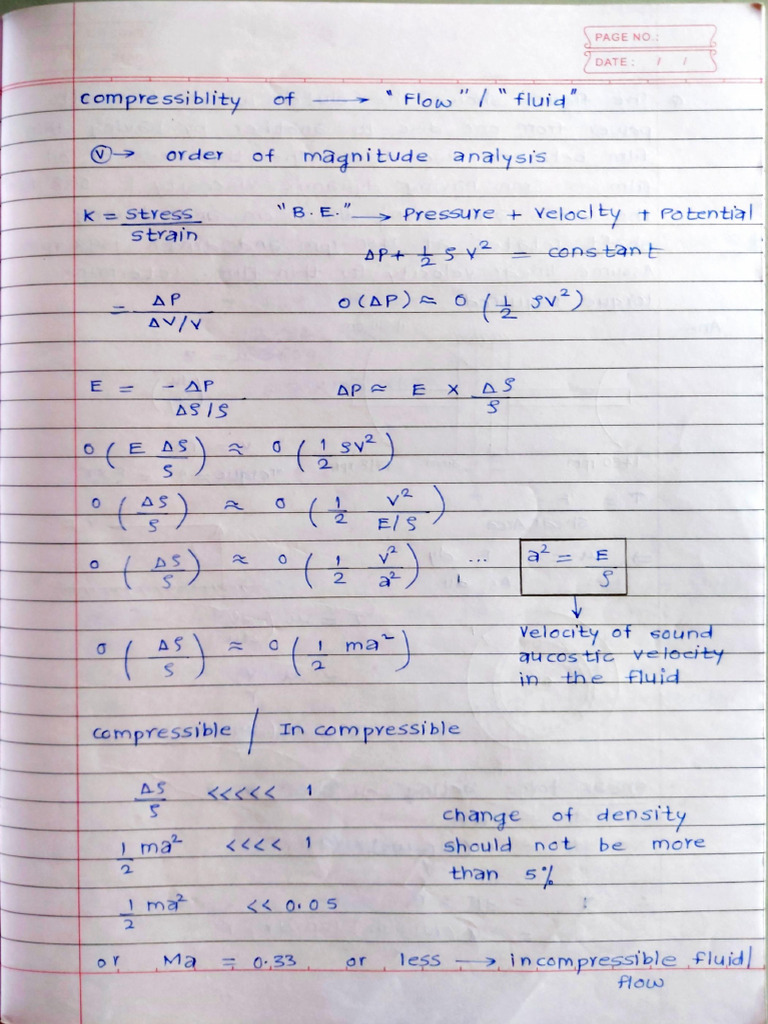 PAGE NO.:
DATE: / /
compressiblity of → "Flow" / "fluid"
Ⓥ→ order of magnitude analysis
K = stress/strain "B.E." → Pressure + velocity + Potential
ΔP + 1/2 ρv² = constant
= ΔP / ΔV/V O(ΔP) ≈ O(1/2 ρv²)
E = -ΔP / Δρ/ρ ΔP ≈ E × Δρ/ρ
O(E Δρ/ρ) ≈ O(1/2 ρv²)
O(Δρ/ρ) ≈ O(1/2 v²/E/ρ)
O(Δρ/ρ) ≈ O(1/2 v²/a²) ... a² = E/ρ
velocity of sound
aucostic velocity
in the fluid
O(Δρ/ρ) ≈ O(1/2 ma²)
compressible / In compressible
Δρ/ρ <<<<< 1
1/2 ma² <<<< 1
change of density
should not be more
than 5%
1/2 ma² << 0.05
or Ma = 0.33 or less → incompressible fluid/
flow